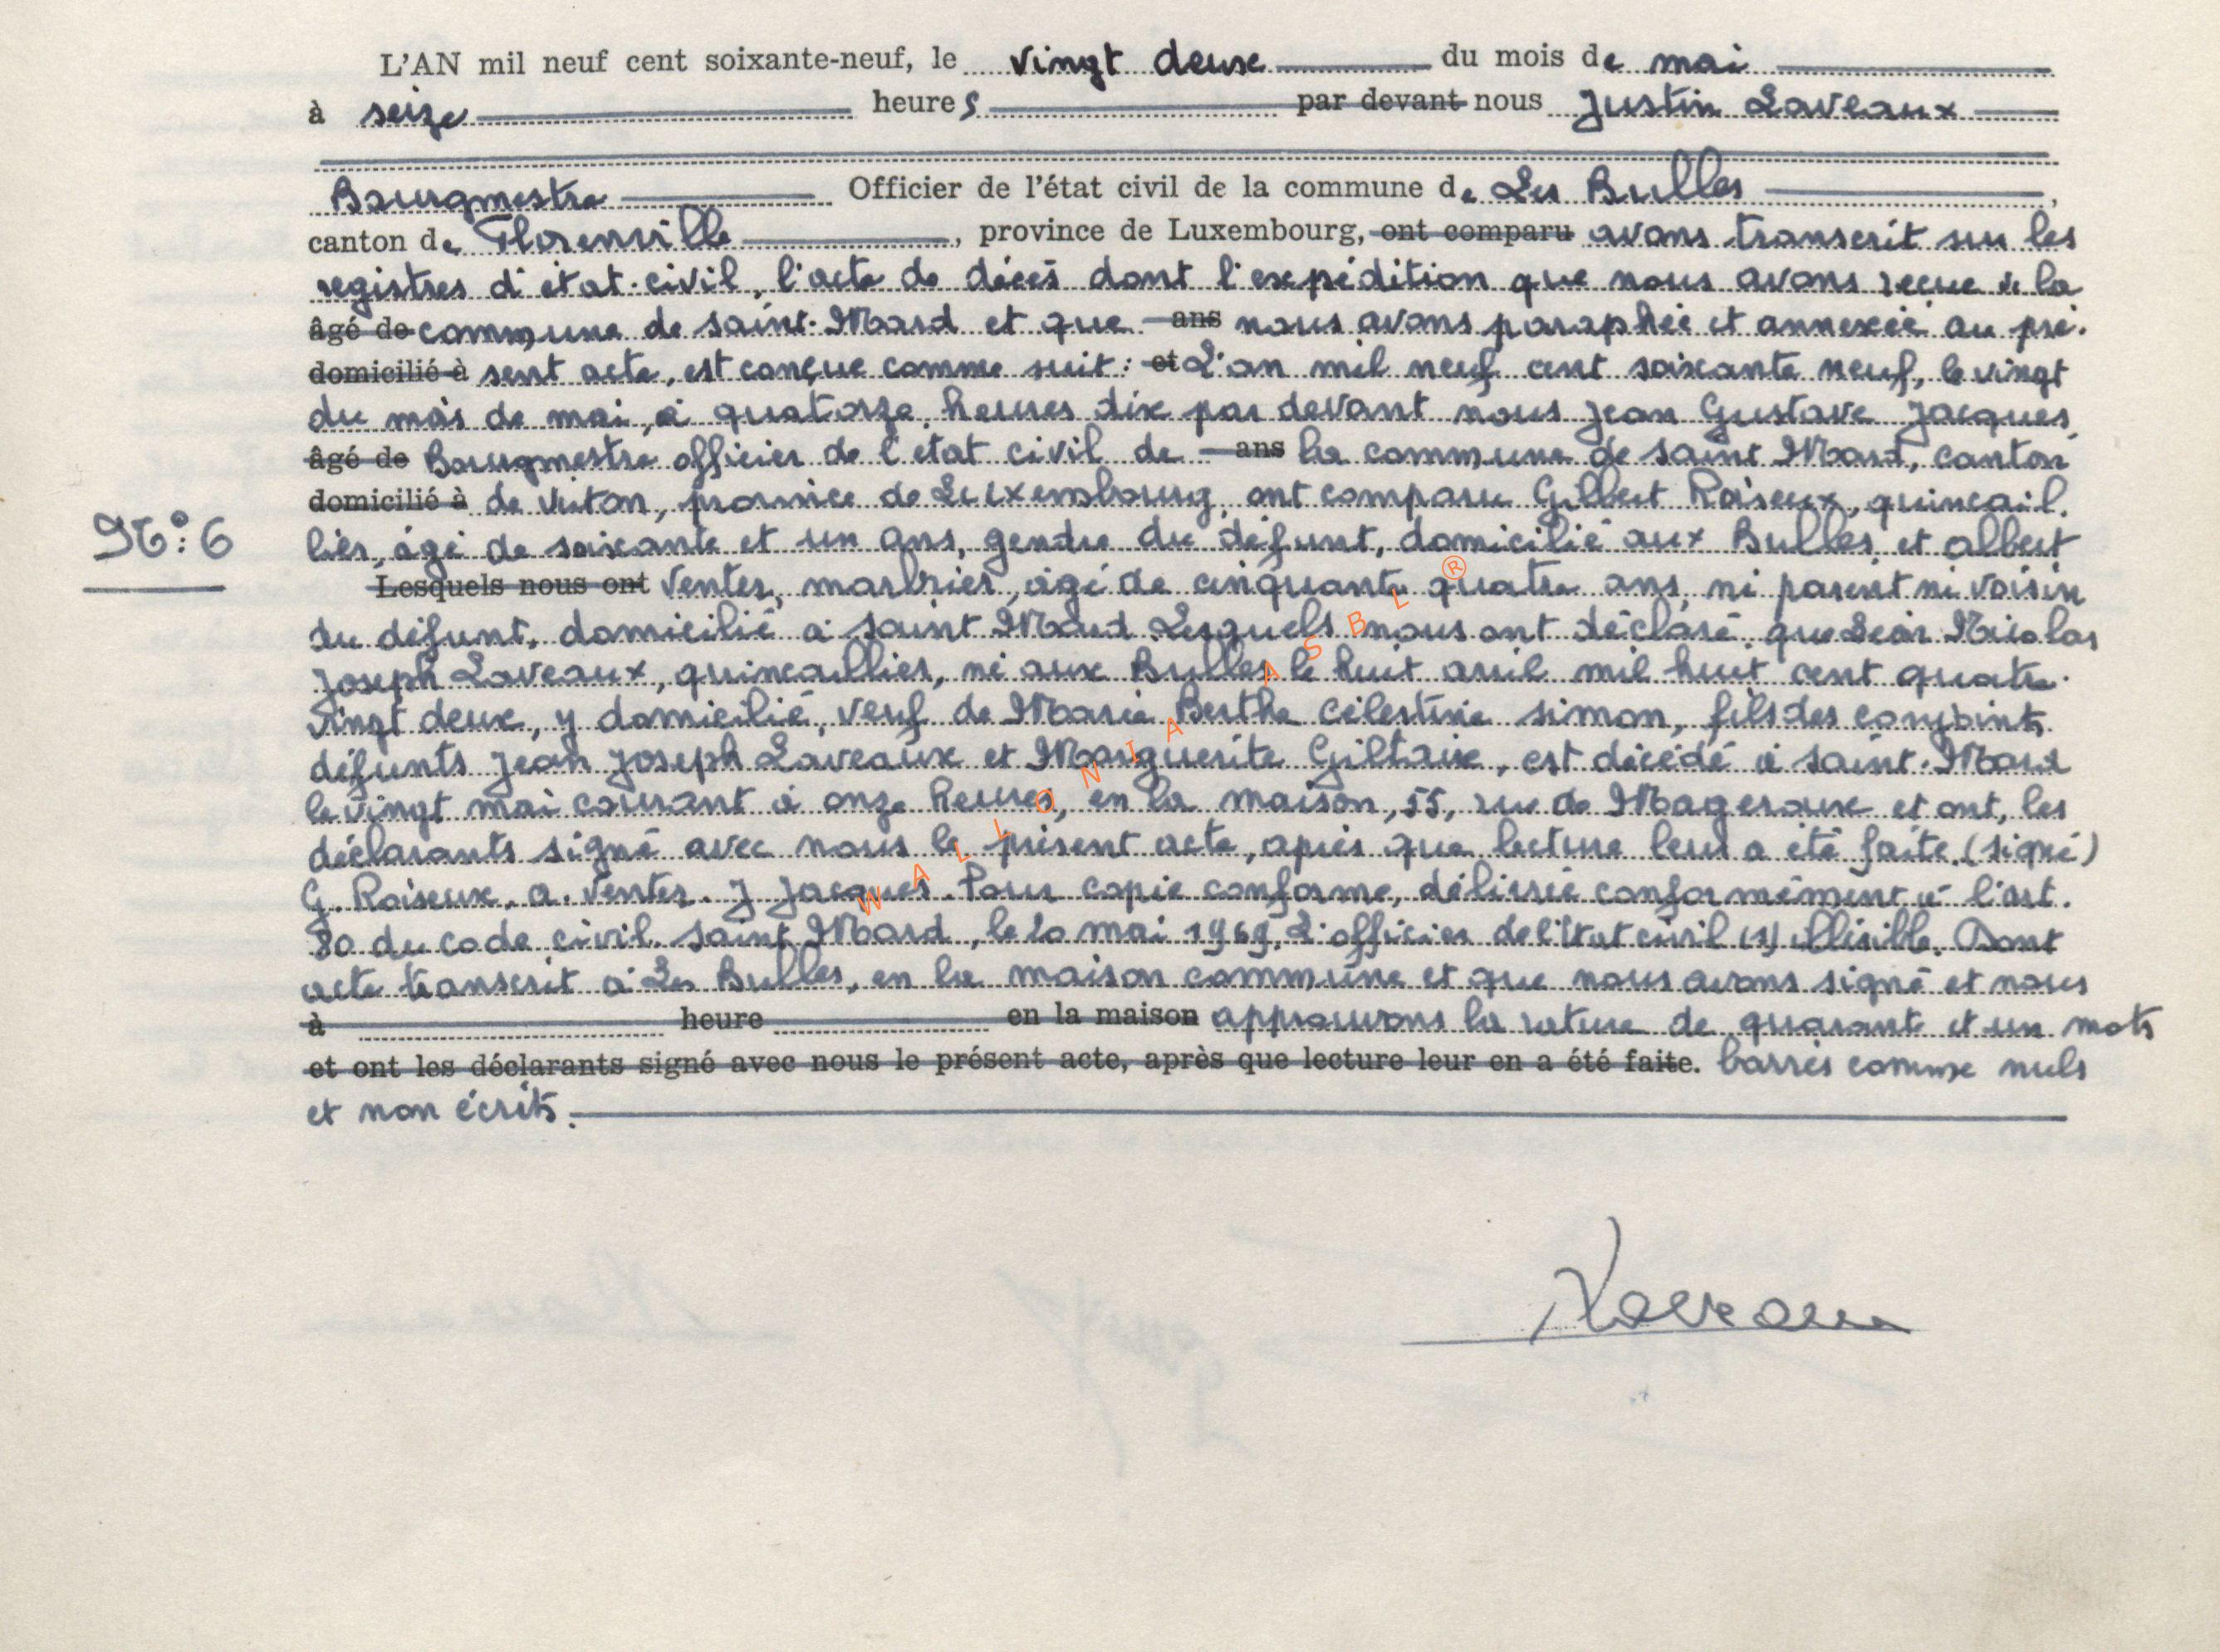 L'AN mil neuf cent soixante-neuf, le vingt deux du mois de mai
à seize heures par devant nous Justin Laveaux
Bourgmestre Officier de l'état civil de la commune de Les Bulles,
canton de Florenville, province de Luxembourg, ont comparu avons transcrit sur les
registres d'état-civil, l'acte de décès dont l'expédition que nous avons reçue de la
âgé de commune de Saint-Mard et que ans nous avons paraphée et annexée au pré-
domicilié à sent acte, est conçue comme suit : et L'an mil neuf cent soixante neuf, le vingt
du mois de mai, à quatorze heures dix par devant nous Jean Gustave Jacques,
âgé de Bourgmestre officier de l'état civil de ans la commune de Saint Mard, canton
domicilié à de Virton, province de Luxembourg, ont comparu Gilbert Roiseux, quincail-
N°: 6
lier, âgé de soixante et un ans, gendre du défunt, domicilié aux Bulles et Albert
Lesquels nous ont Ventes, marbrier, âgé de cinquante quatre ans, ni parent ni voisin
du défunt, domicilié à Saint Mard. Lesquels nous ont déclaré que Nicolas
Joseph Laveaux, quincaillier, né aux Bulles le huit avril mil huit cent quatre-
vingt deux, y domicilié, veuf de Marie Berthe Célestine Simon, fils des conjoints
défunts Jean Joseph Laveaux et Marguerite Giltaix, est décédé à Saint-Mard
le vingt mai courant à onze heures, en la maison, 55, rue de Mageroux et ont, les
déclarants signé avec nous le présent acte, après que lecture leur a été faite. (signé)
G. Roiseux. A. Ventes. J Jacques. Pour copie conforme, délivrée conformément à l'art.
80 du code civil. Saint Mard, le 20 mai 1969, L'officier de l'état civil (s) illisible. Dont
acte transcrit à Les Bulles, en la maison commune et que nous avons signé et nous
à heure en la maison approuvons la rature de quarante et un mots
et ont les déclarants signé avec nous le présent acte, après que lecture leur en a été faite. barrés comme nuls
et non écrits.
Laveaux
WALLONIA ASBL ®